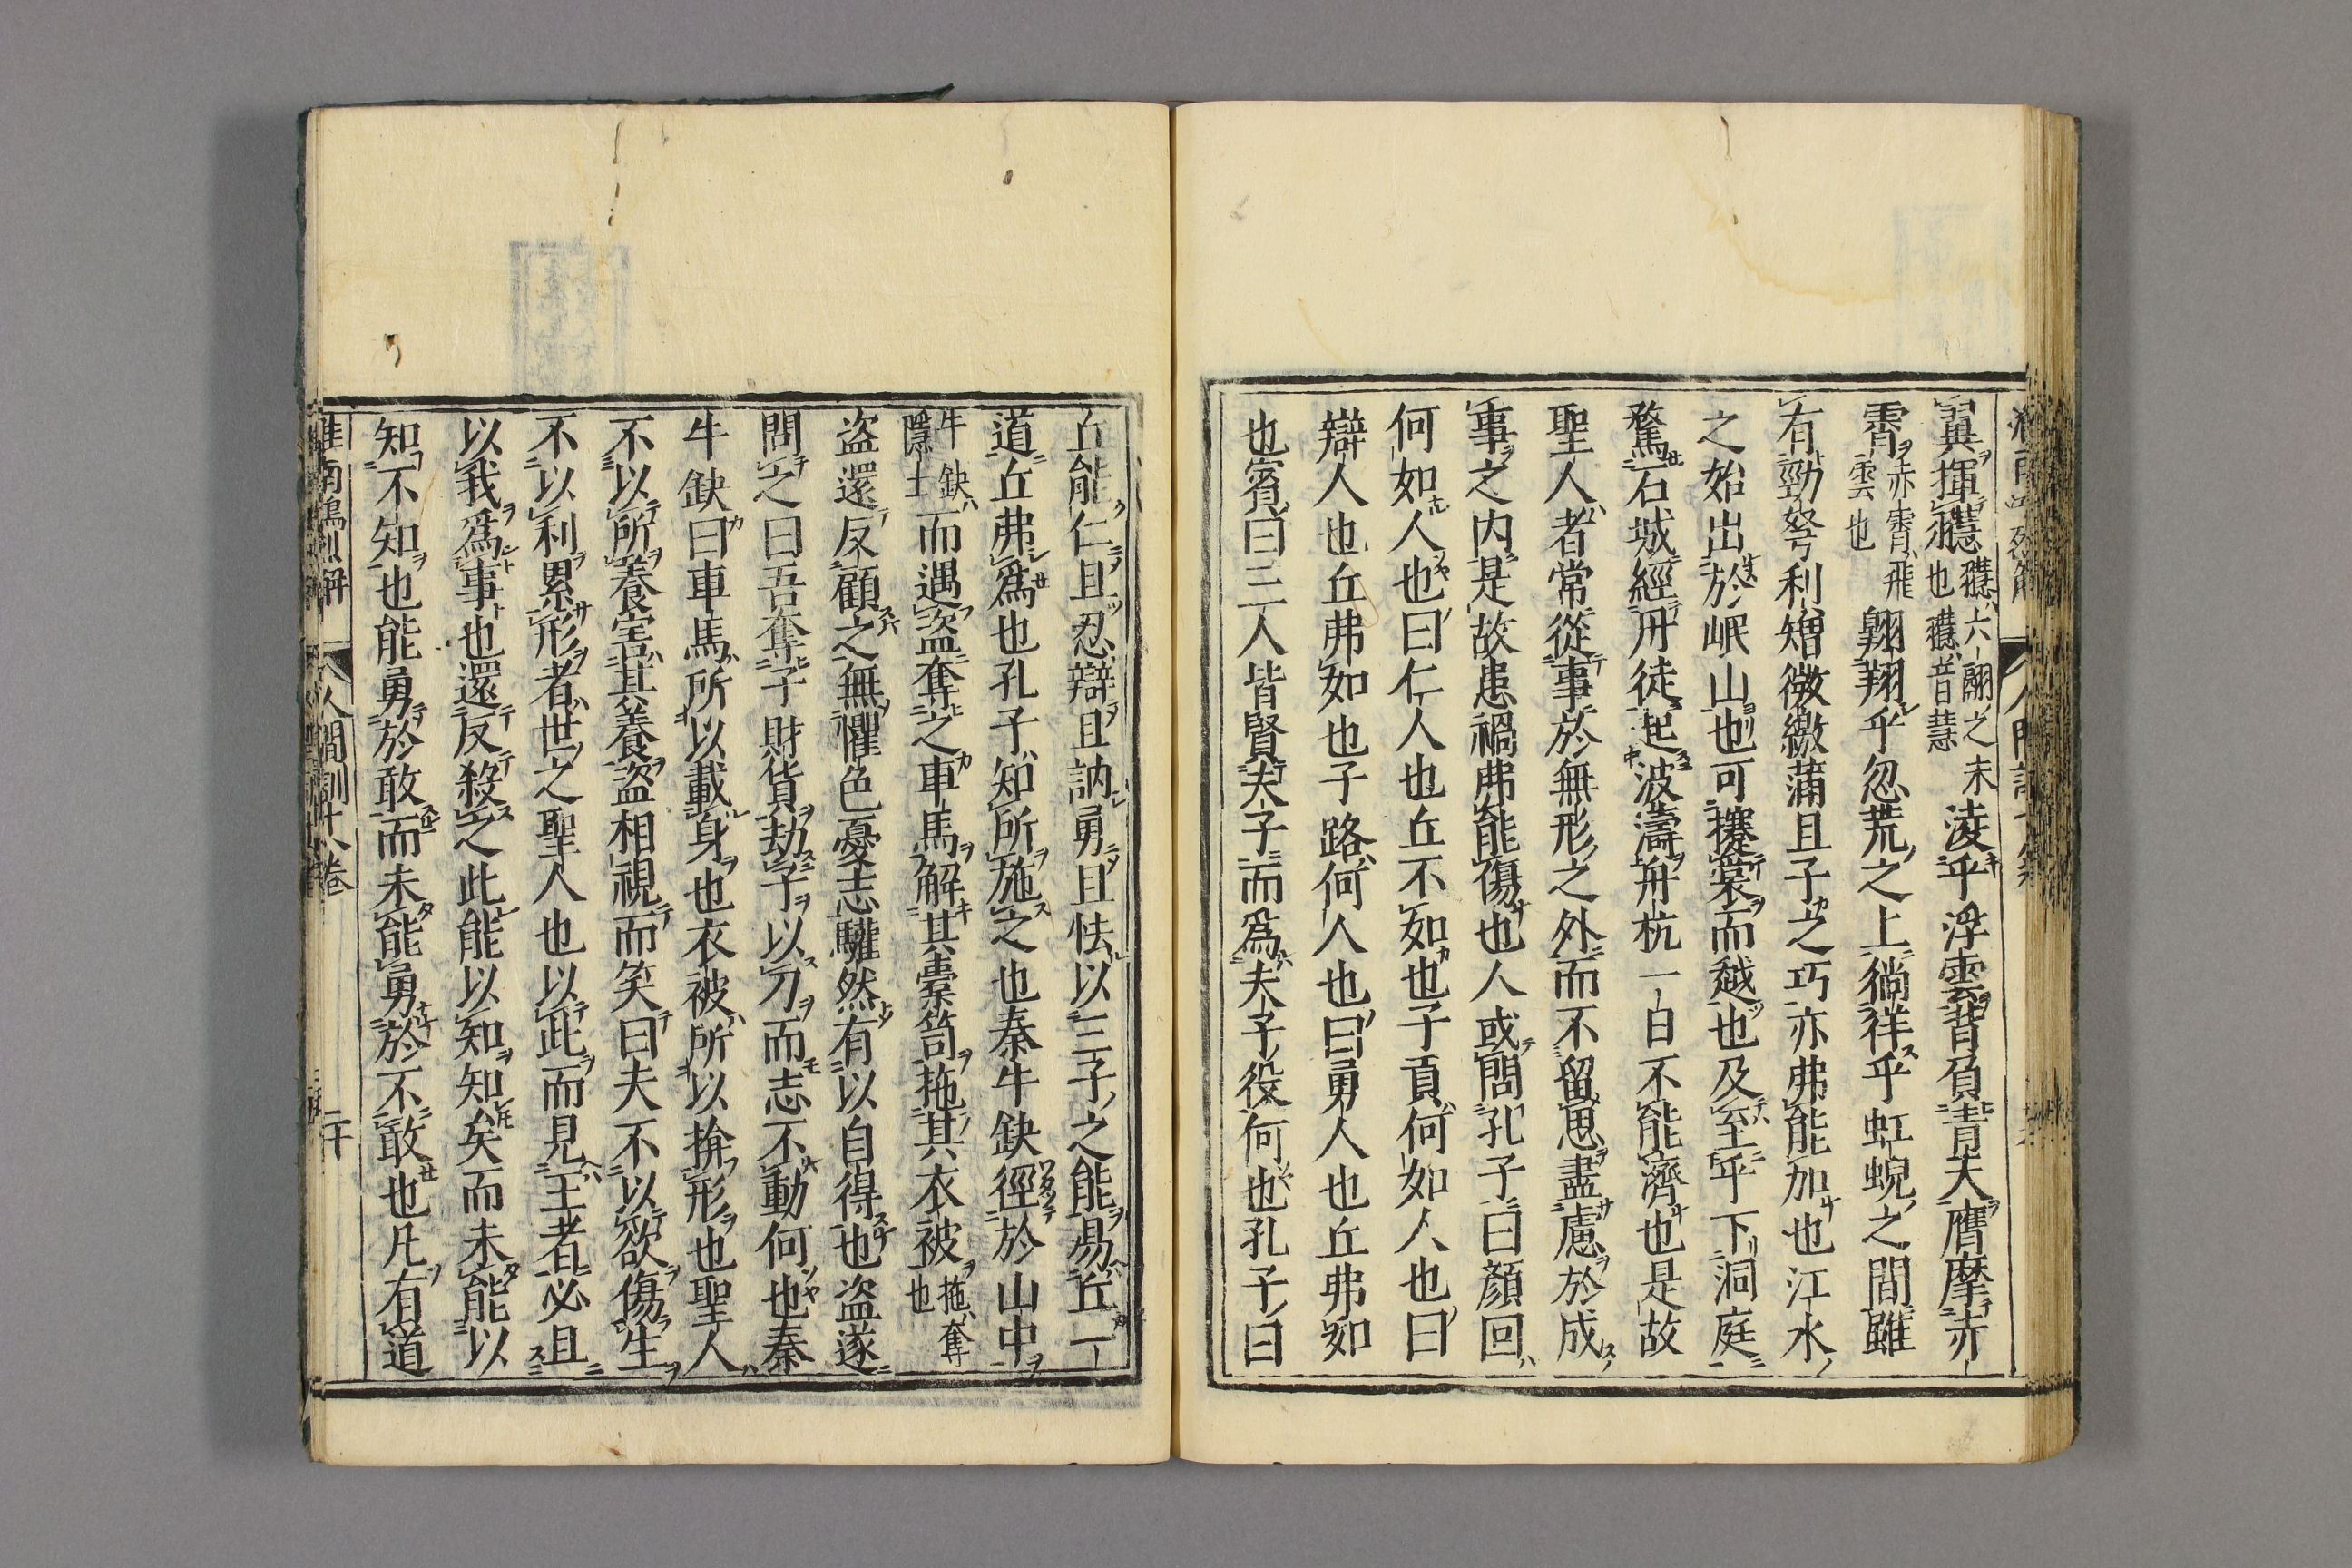 翼揮䎚䎚六翮之未也䎚音慧凌乎浮雲背負青天膺摩赤
霄赤霄飛雲也翺翔乎忽荒之上徜徉乎虹蜺之間雖
有勁弩利矰微繳蒲且子之巧亦弗能加也江水
之始出於岷山也可攓裳而越也及至乎下洞庭
騖石城經丹徒起波濤舟杭一日不能濟也是故
聖人者常從事於無形之外而不留思盡慮於成
事之内是故患禍弗能傷也人或問孔子曰顔回
何如人也曰仁人也丘不如也子貢何如人也曰
辯人也丘弗如也子路何人也曰勇人也丘弗如
也賓曰三人皆賢夫子而爲夫子役何也孔子曰
丘能仁且忍辯且訥勇且怯以三子之能易丘一
道丘弗爲也孔子知所施之也秦牛缺徑於山中
牛缺隱士而遇盜奪之車馬解其橐笥拖其衣被拖奪也
盜還反顧之無懼色憂志驩然有以自得也盜遂
問之曰吾奪子財貨劫子以刀而志不動何也秦
牛缺曰車馬所以載身也衣被所以揜形也聖人
不以所養害其養盜相視而笑曰夫不以欲傷生
不以利累形者世之聖人也以此而見王者必且
以我爲事也還反殺之此能以知知矣而未能以
知不知也能勇於敢而未能勇於不敢也凡有道
淮南鴻烈解 人間訓十八卷 二十